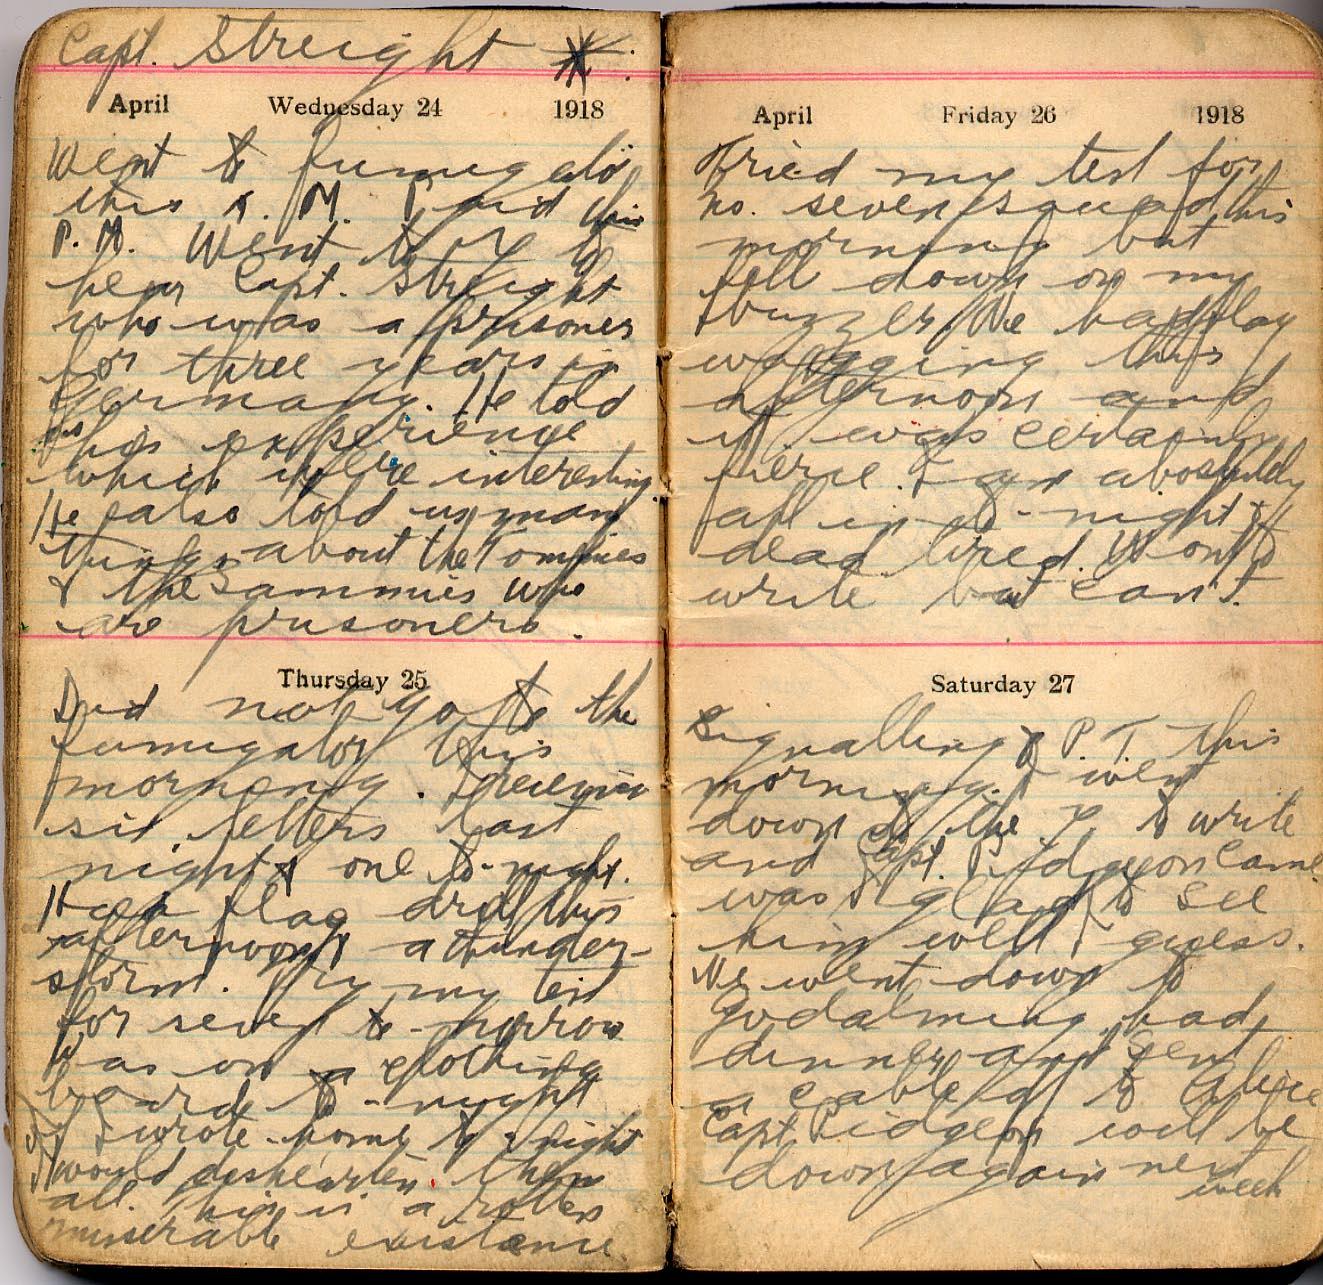 Capt. Streight
April Wednesday 24 1918
Went to fumigator
this A. M. and this
P. M. Went to Y to
hear Capt. Streight
who was a prisoner
for three years in
Germany. He told
his experience
which were interesting.
He also told us many
things about the Tommies
& the Sammies who
are prisoners.
Thursday 25
Did not go to the
fumigator this
morning. I received
six letters last
night & one to-night.
Had flag drill this
afternoon & a thunder-
storm. Try my test
for seven to-morrow
Was on a clothing
board to-night
If I wrote home to-night
I would dishearten them
all. This is a rotten
miserable existance.
April Friday 26 1918
Tried my test for
no. seven squad this
morning but
fell down on my
buzzer. We had flag
wagging this
afternoon and
it was certainly
fierce. I am
all in to-night &
dead tired. Want to
write but can't.
Saturday 27
Signalling & P. T. this
morning. I went
down to the Y to write
and Capt. Pidgeon came.
was I glad to see
him well I guess.
We went down to
Godalming had
dinner and sent
a cable to Alice
Capt. Pidgeon will be
down again next
week